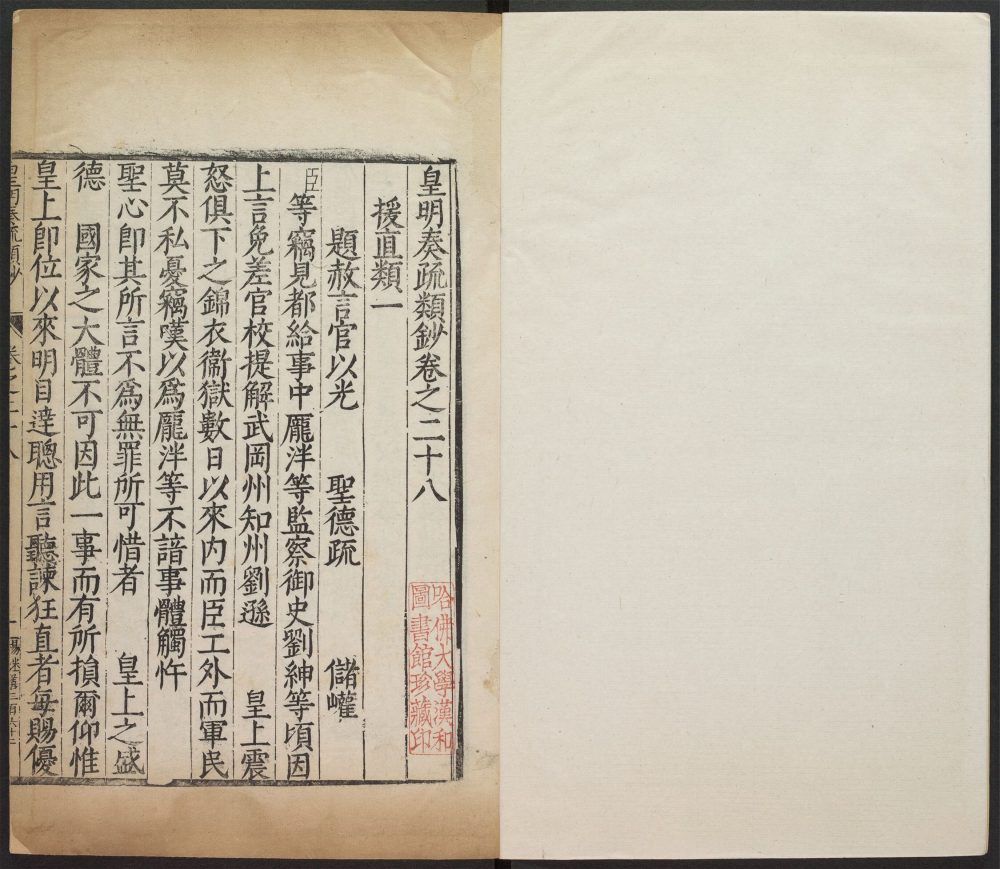 皇明奏疏類鈔卷之二十八
援直類一
題赦言官以光 聖德疏 儲巏
臣等竊見都給事中龎泮等監察御史劉紳等頃因
上言免差官校提解武岡州知州劉遜 皇上震
怒俱下之錦衣衞獄數日以來内而臣工外而軍民
莫不私憂竊嘆以爲龎泮等不諳事體觸忤
聖心卽其所言不爲無罪所可惜者 皇上之盛
德 國家之大體不可因此一事而有所損爾仰惟
皇上卽位以來明目達聰用言聽諫狂直者每賜優
皇明奏疏類鈔 卷之二十八 一
哈佛大學漢和
圖書館珍藏印